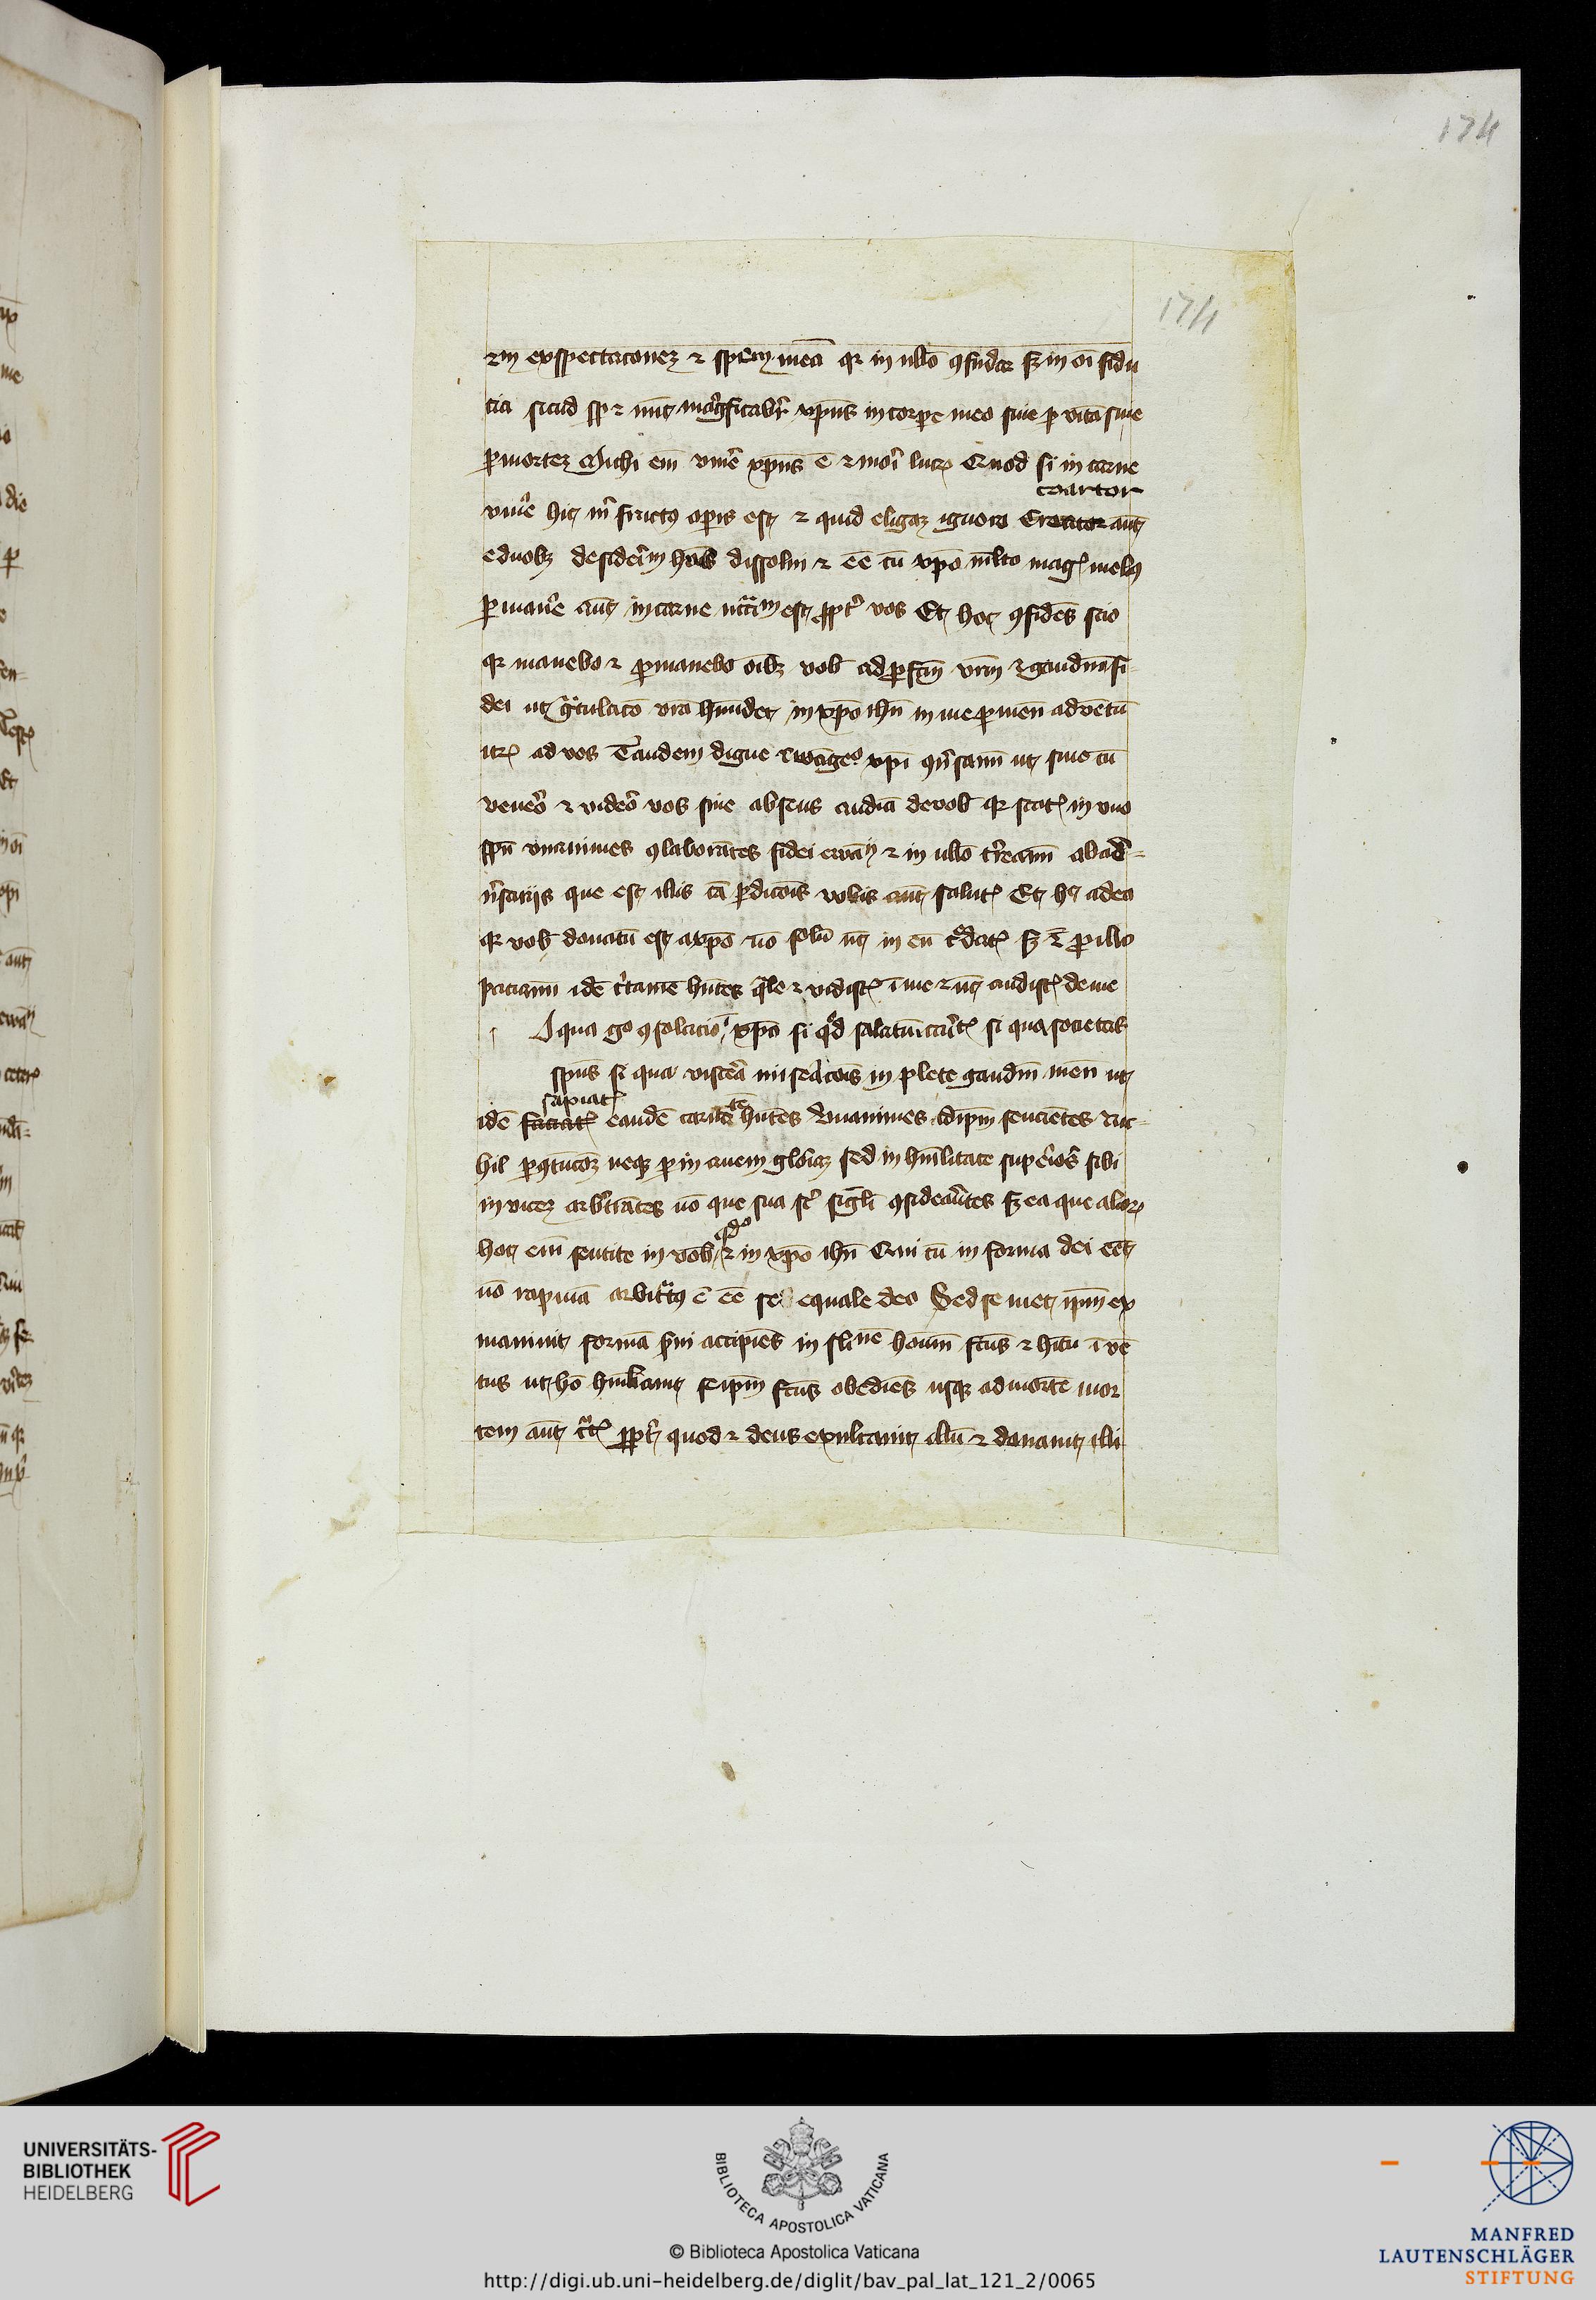 174
174
em exspectaconez ⁊ spem meā qr in nllō ꝯfūdar sz in oī fidu
cia sicud sp ⁊ nūc mag̃ficabr̃ xp̄us in corpe meo siue p vitā siue
p mortez Michi em̄ viuē xp̄us ē ⁊ mori lucꝝ Quod si in carne
coartor
viuē hic m̄ fructꝯ opis est ⁊ quid eligaz ignoro Creator aūt
e duobz desideriū hn̄s dissolui ⁊ eē cū xp̄o mlto magꝭ melꝯ
p manē aūt in carne nccrm est ppt̄ vos Et hoc ꝯfidēs scio
qr manebo ⁊ pmanebo oībz vob ad pfcm̄ vrm̄ ⁊ gaudm̄ fi-
dei ut grtulacō vrā hundet in xp̄o ihū in me p meū adventū
itꝝ ad vos Tandem digne ewāgeo xpī ꝯūsamī ut siue cū
veneō ⁊ videō vos siue absens audiā de vob qr statꝭ in vno
spū vnanimes ꝯlaborātes fidei ewāij ⁊ in nllō trēamī ab ad-
ūsarijs que est illis cā pdicōis vobis aūt salutꝭ Et hꝰ a deo
qr vob donatū est a xp̄o nō solū ut in eū cdatꝭ sz ⁊ p illo
paciamī idē ctamē hntes qle ⁊ vidistꝭ ī me ⁊ nūc audistꝭ de me
Siqua go ꝯsolacio ī xp̄o si qd salatiū caritꝭ si qua societas
spūs si qua viscēa miseācōis in plete gaudm̄ meū ut
sapiatꝭ
idē faciatꝭ eandē caritatē hntēs vnanimes idipm sencientes nic-
hil p ꝯtncōz neqz p in anem gloiaz sed in hmlitate supiōs sibi
in vicez arbitrātes nō que sua st sigli ꝯsideātes sz ea que alioꝝ
qdo
hoc em̄ sentite in vob ⁊ in xp̄o ihū Qui cū in forma dei eēt
nō rapinā arbitrꝯ ē eē se equale deo Sed se met ipm ex
maniuit formā sui accipiēs in sli nē hoīm fcus ⁊ hitu ī vē
tus ut hō hmliauit seipm fcūs obediēs usqz ad mortē mor
tem aūt cucꝭ ppt quod ⁊ deus exultauit illū ⁊ donauit illi
UNIVERSITÄTS-
BIBLIOTHEK
HEIDELBERG
BIBLIOTECA APOSTOLICA VATICANA
© Biblioteca Apostolica Vaticana
http://digi.ub.uni-heidelberg.de/diglit/bav_pal_lat_121_2/0065
MANFRED
LAUTENSCHLÄGER
STIFTUNG